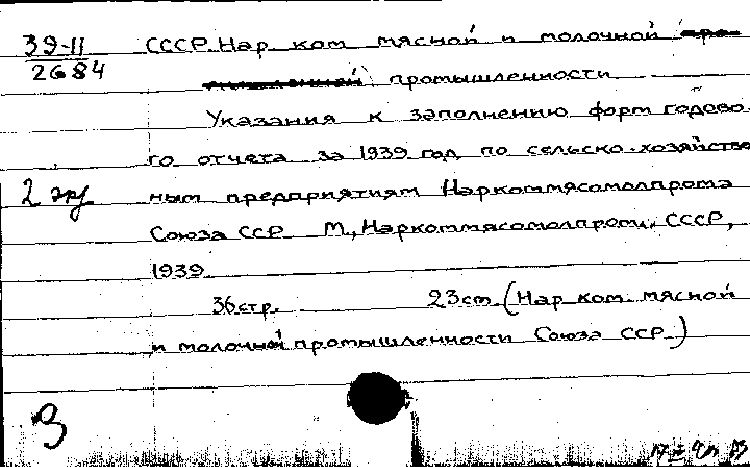 39-11
2684
СССР. Нар ком мясной и молочной
промышленности
Указания к заполнению форм годово
го отчета за 1939 год по сельско-хозяйстве
2 экз
ным предприятиям Наркоммясомолпрома
Союза ССР М., Наркоммясомолпром, СССР,
1939
36 стр. 23 см. (Нар ком. мясной
и молочной промышленности Союза ССР.)
З